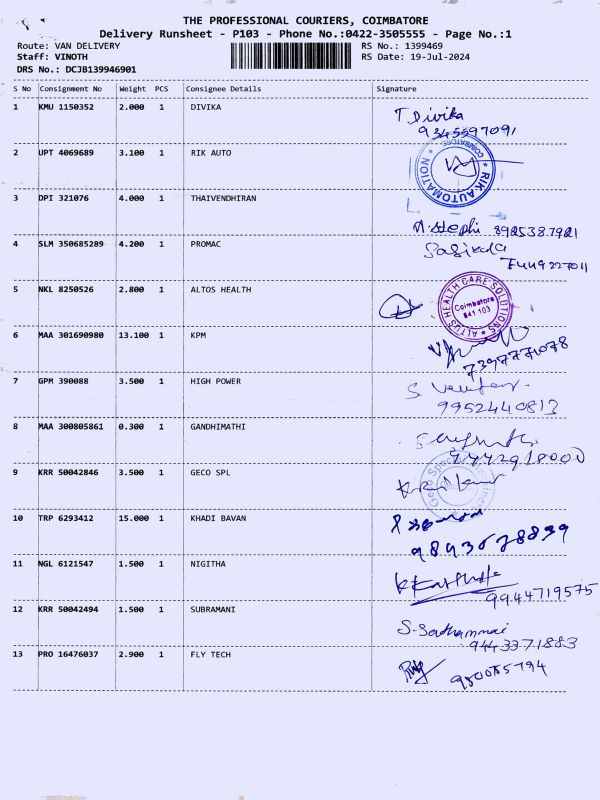 THE PROFESSIONAL COURIERS, COIMBATORE
Delivery Runsheet - P103 - Phone No.:0422-3505555 - Page No.:1
Route: VAN DELIVERY RS No.: 1399469
Staff: VINOTH RS Date: 19-Jul-2024
DRS No.: DCJB139946901
S No Consignment No Weight PCS Consignee Details Signature
1 KMU 1150352 2.000 1 DIVIKA T. Divika
9345597091
2 UPT 4069689 3.100 1 RIK AUTO
RIK AUTOMATION
COIMBATORE
3 DPI 321076 4.000 1 THAIVENDHIRAN
4 SLM 350685289 4.200 1 PROMAC
5 NKL 8250526 2.800 1 ALTOS HEALTH
ALTUS HEALTH CARE SOLUTIONS
Coimbatore
641 103
6 MAA 301690980 13.100 1 KPM
7397771078
7 GPM 390088 3.500 1 HIGH POWER
9952440813
8 MAA 300805861 0.300 1 GANDHIMATHI
9 KRR 50042846 3.500 1 GECO SPL
10 TRP 6293412 15.000 1 KHADI BAVAN
11 NGL 6121547 1.500 1 NIGITHA
9944719575
12 KRR 50042494 1.500 1 SUBRAMANI
9443371883
13 PRO 16476037 2.900 1 FLY TECH